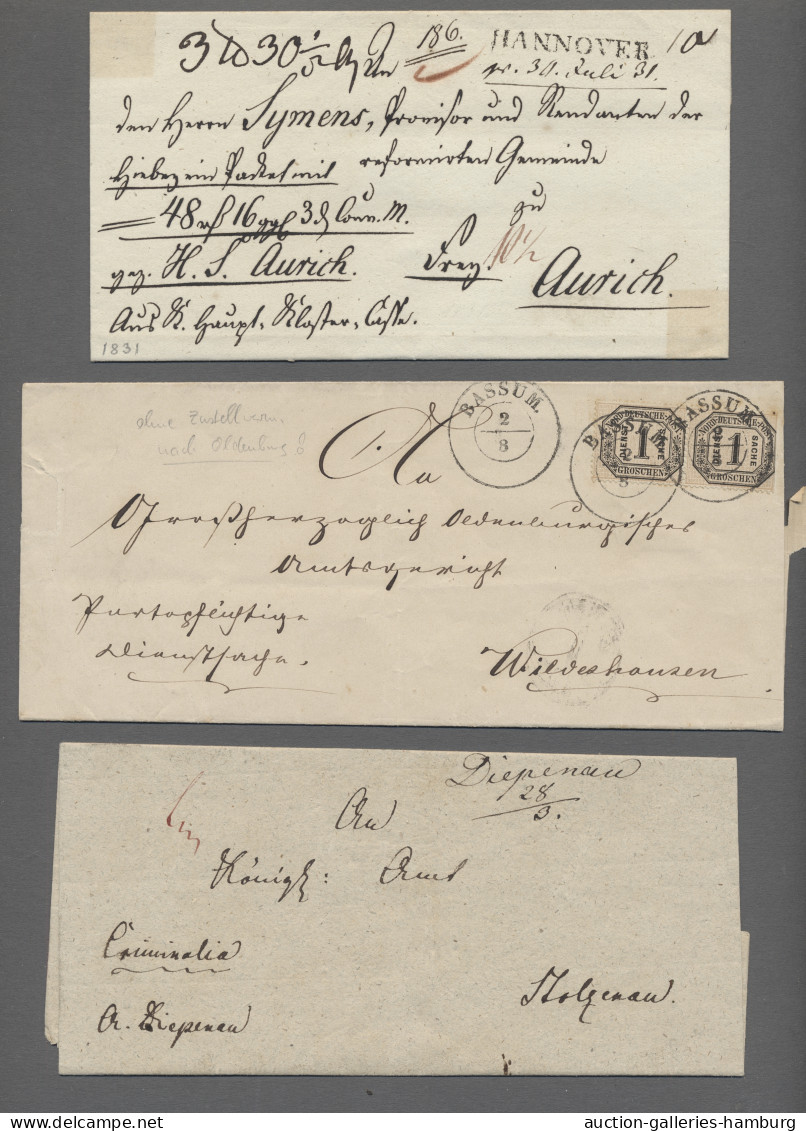 186.
HANNOVER
30. Juli 31.
den Herrn Symens, Provisor und Rendanten der
Hiebey ein Packet mit reformirten Gemeinde
48 16 3 Conv. M. zu
H. S. Aurich. Frey. 10 1/2 Aurich.
Aus K. Haupt-Kloster-Casse.
1831
ohne
nach Oldenburg
BASSUM.
2
8
BASSUM
BASSUM
NORD-DEUTSCHE-POST
DIENST
1
SACHE
GROSCHEN
NORD-DEUTSCHE-POST
DIENST
1
SACHE
GROSCHEN
An
Großherzoglich Oldenburgisches
Amtsgericht
Portopflichtige
Dienstsache.
Wildeshausen
Diepenau
28
3.
An
Königl: Amt
Criminalia
Stolzenau.
A. Diepenau
auction-galleries-hamburg